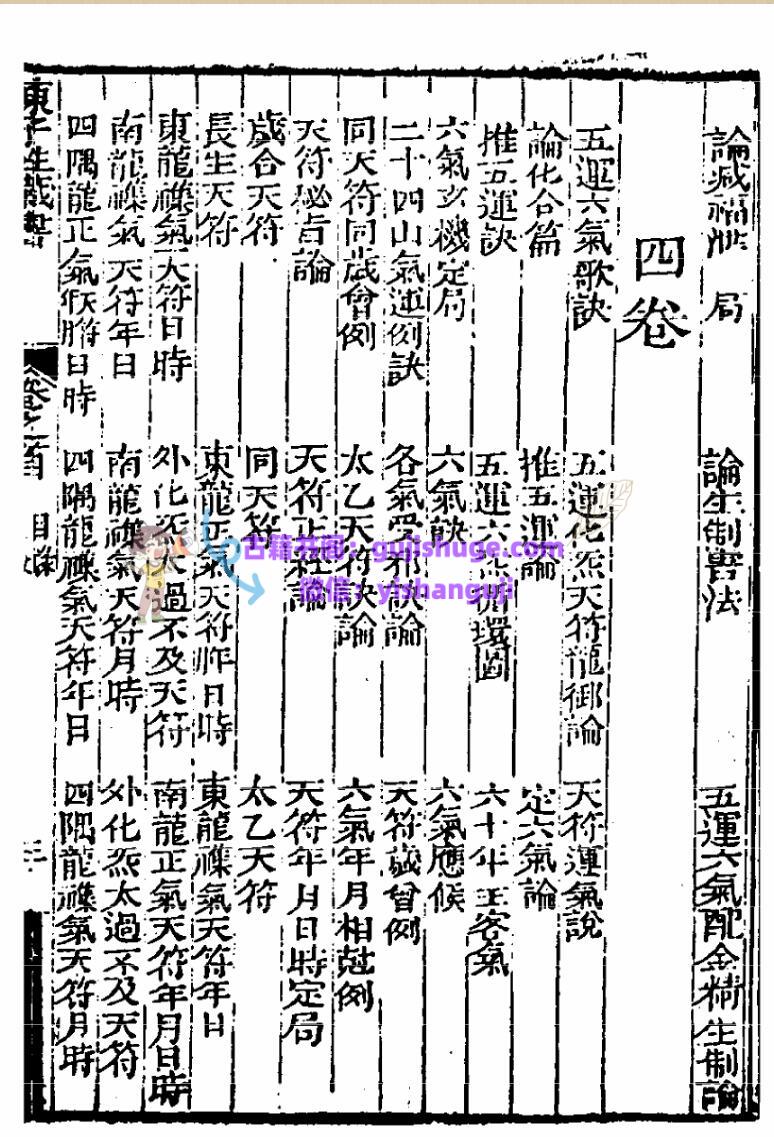 論減福 局 論生制害法 五運六氣配金精生制論
四卷
五運六氣歌訣 五運化炁天符龍御論 天符運氣說
論化合篇 推五運論 定六氣論
推五運訣 五運六炁循環圖 六十年主客氣
六氣玄機定局 六氣訣 六氣應候
二十四山氣運例訣 各氣受邪訣論 天符歲會例
同天符同歲會例 太乙天符訣論 六氣年月相尅例
天符秘旨論 天符正 論 天符年月日時定局
歲合天符 同天符 太乙天符
長生天符 東龍正氣天符 日時 東龍襍氣天符年日
東龍襍氣天符日時 外化炁太過不及天符 南龍正氣天符年月日時
南龍襍氣天符年日 南龍襍氣天符月時 外化炁太過不及天符
四隅龍正氣 日時 四隅龍襍氣天符年日 四隅龍襍氣天符月時
卷之首 目錄 三
古籍书阁：gujishuge.com
微信：yishanguji